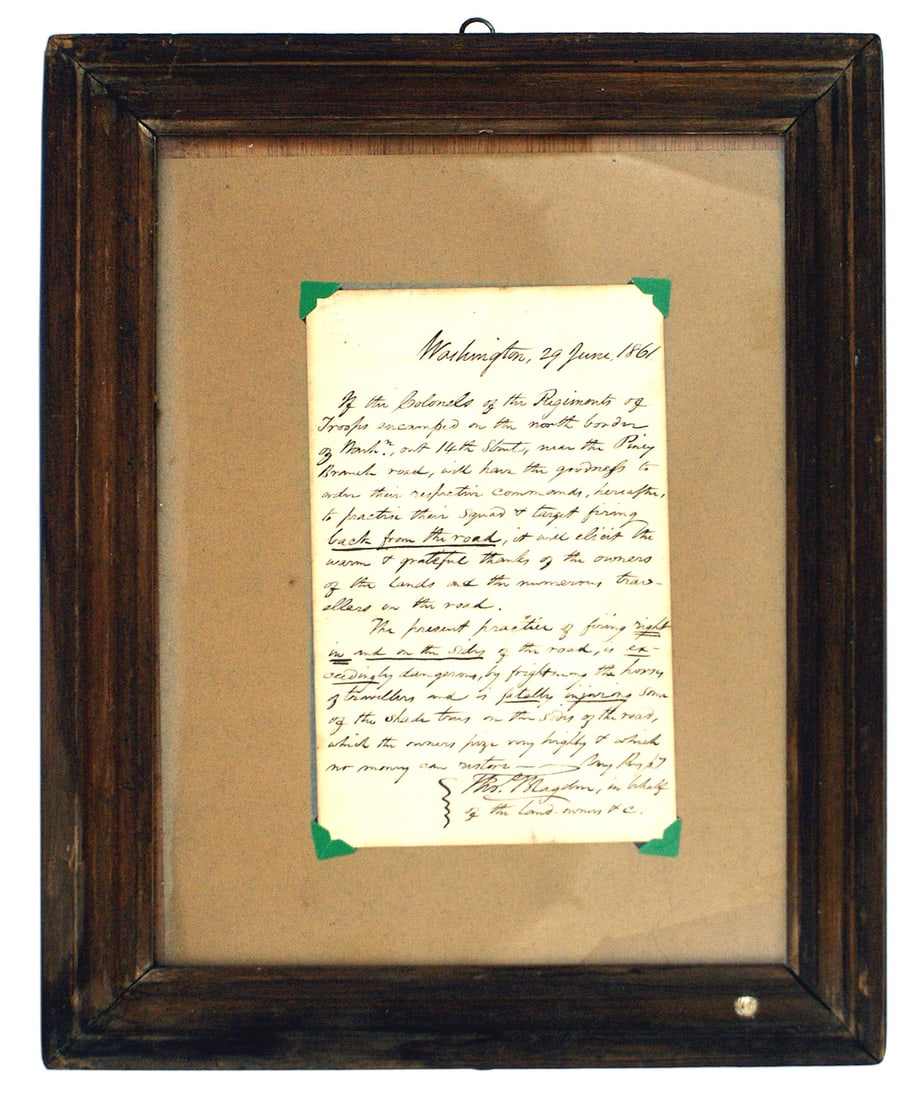 Washington, 29 June, 1861
If the Colonels of the Regiments of
Troops encamped on the north border
of Washn., out 14th Street, near the Piney
Branch road, will have the goodness to
order their respective commands, hereafter,
to practice their squad & target firing
back from the road, it will elicit the
warm & grateful thanks of the owners
of the lands and the numerous trav-
ellers on the road.
The present practice of firing right
in and on the sides of the road, is ex-
ceedingly dangerous, by frightening the horses
of travellers and is fatally injuring some
of the shade trees on the sides of the road,
which the owners prize very highly & which
no money can restore — Very Resp
Thos. Blagden, in behalf
of the land owners & c.